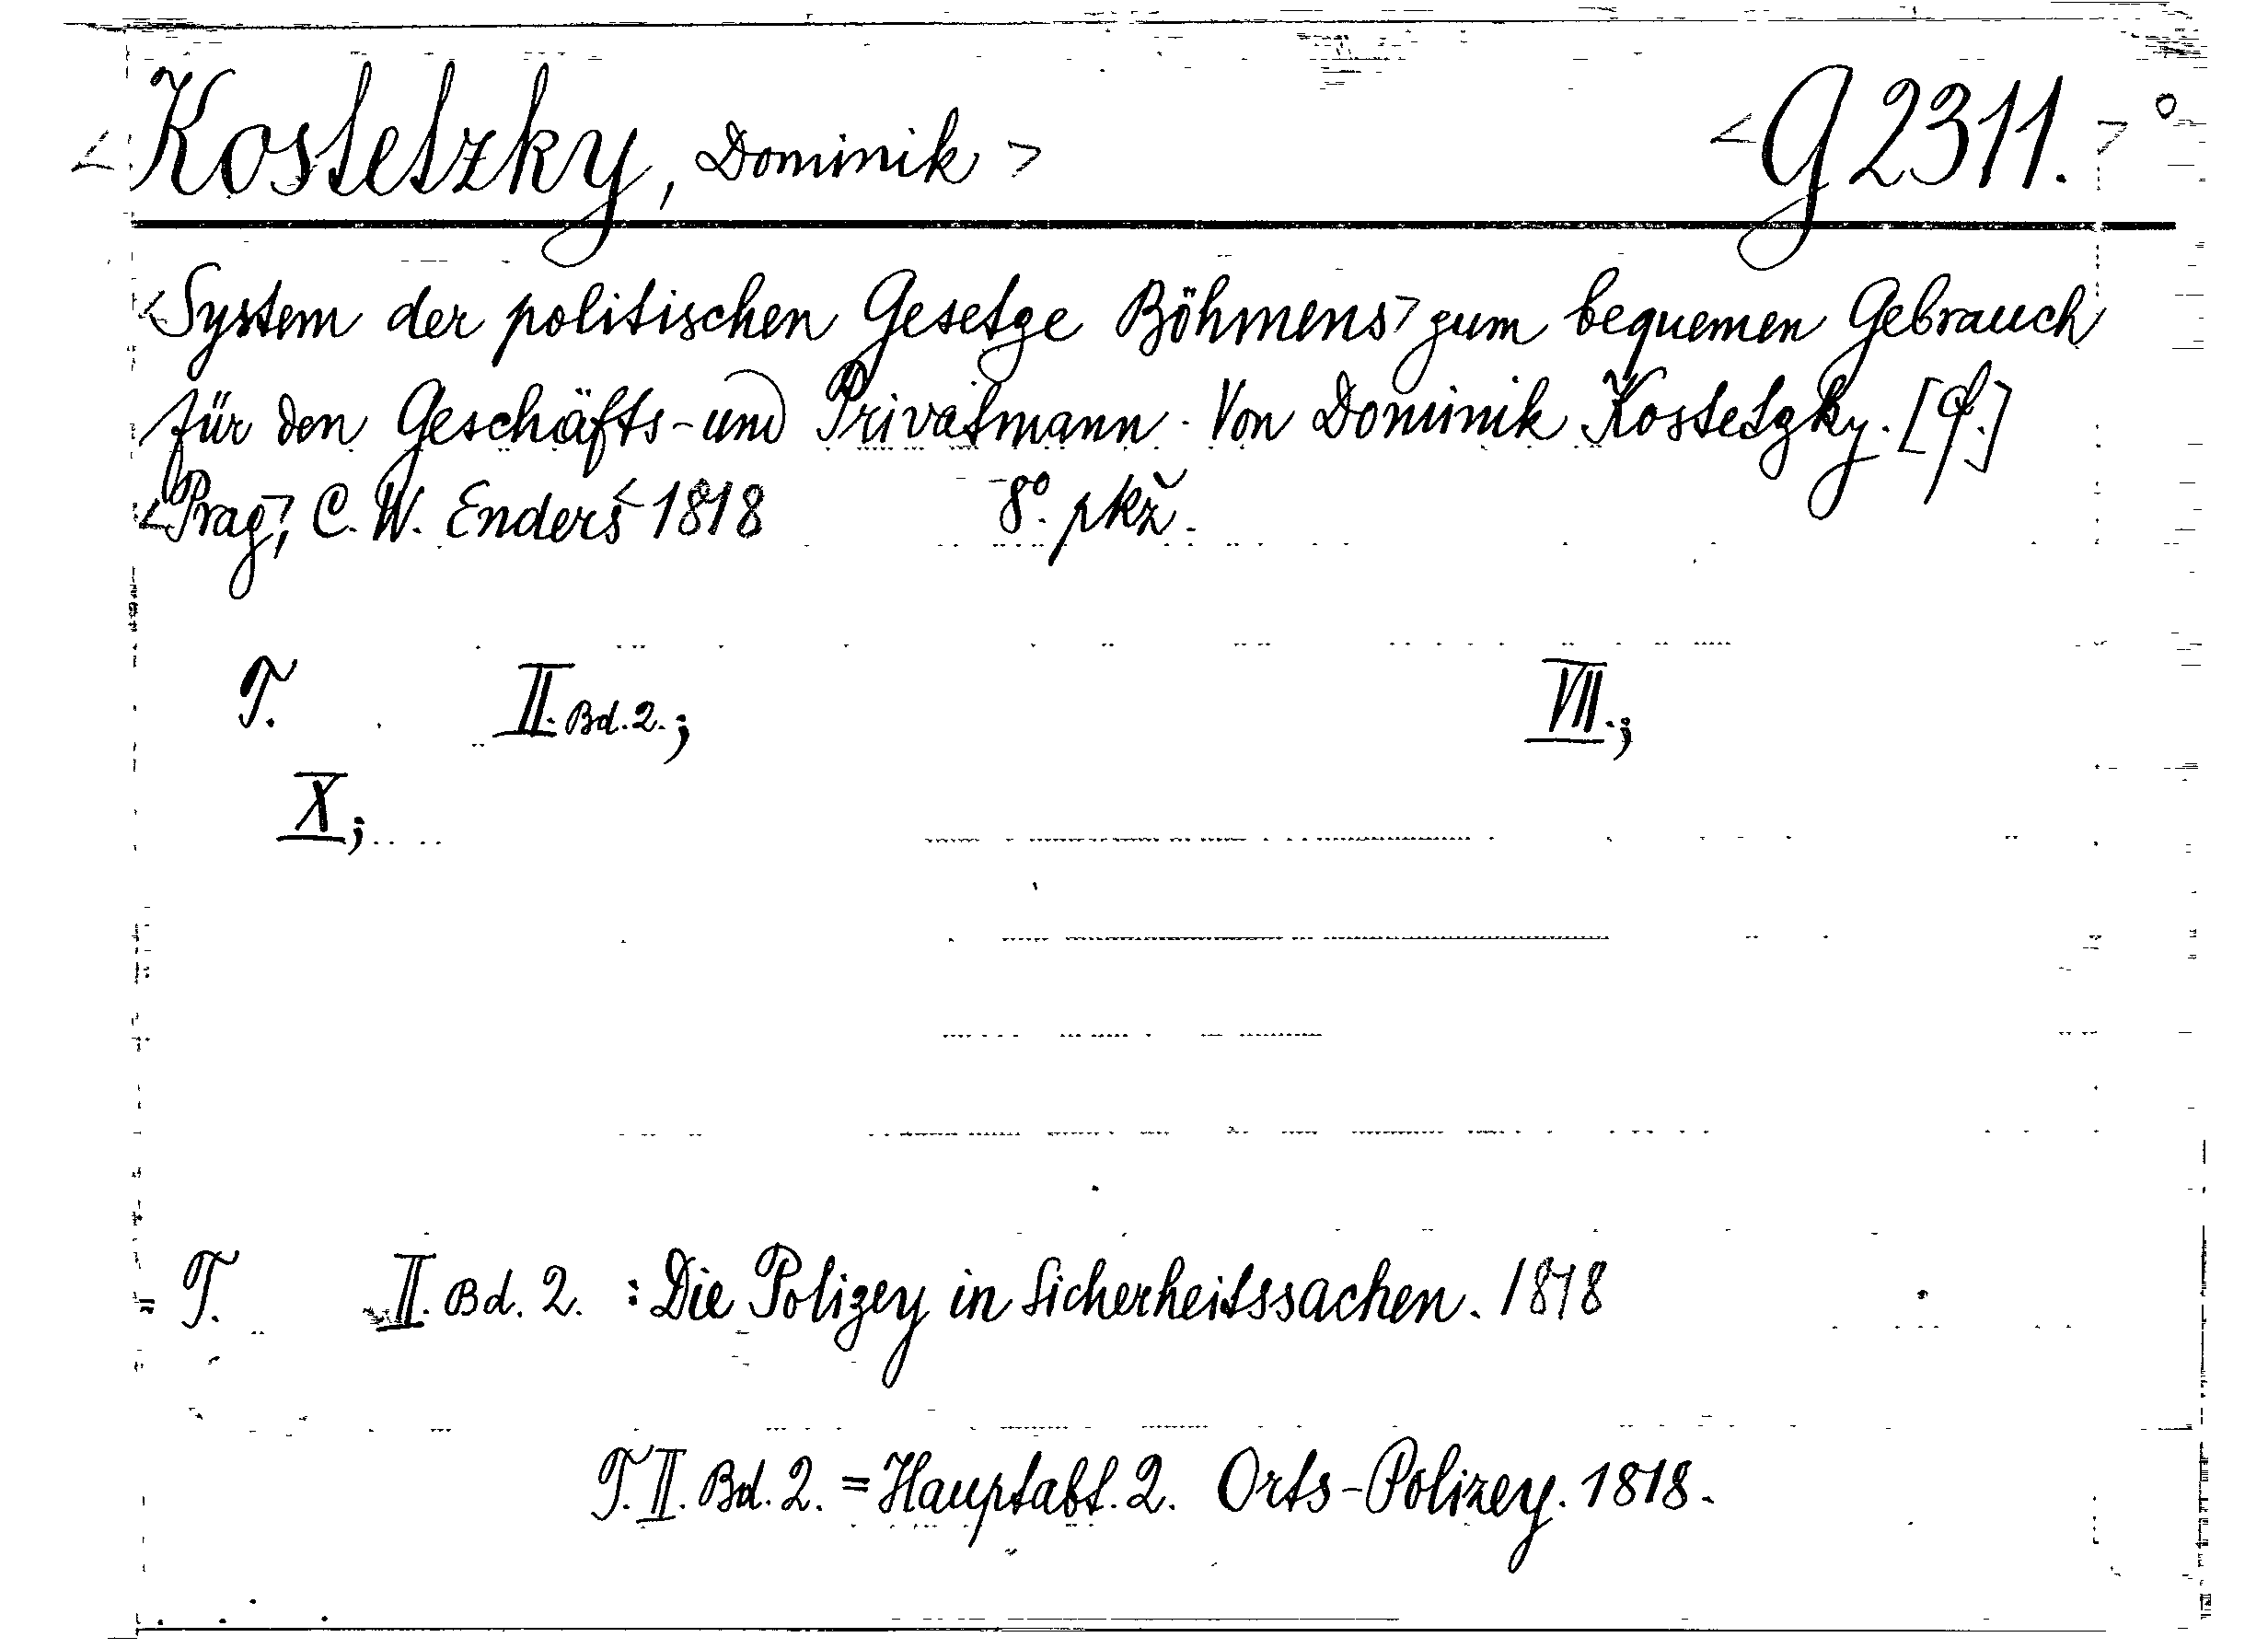 <Kostetzky, Dominik> <G 2311.>
<System der politischen Gesetze Böhmens> zum bequemen Gebrauch
für den Geschäfts- und Privatmann. Von Dominik Kostetzky.
<Prag>, C. W. Enders <1818 8°. pkž.
T. II. Bd. 2.; VII.;
X;
T. II. Bd. 2. : Die Polizey in Sicherheitssachen. 1818
T. II. Bd. 2. = Hauptabt. 2. Orts-Polizey. 1818.